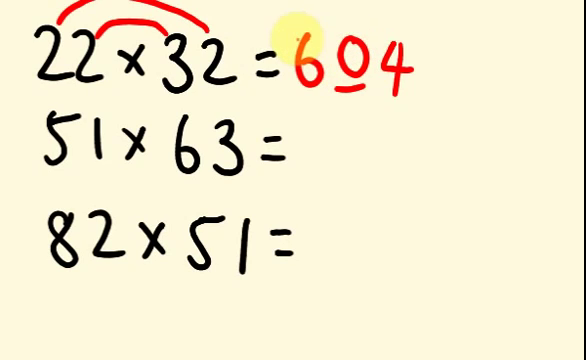 22×32=604
51×63=
82×51=